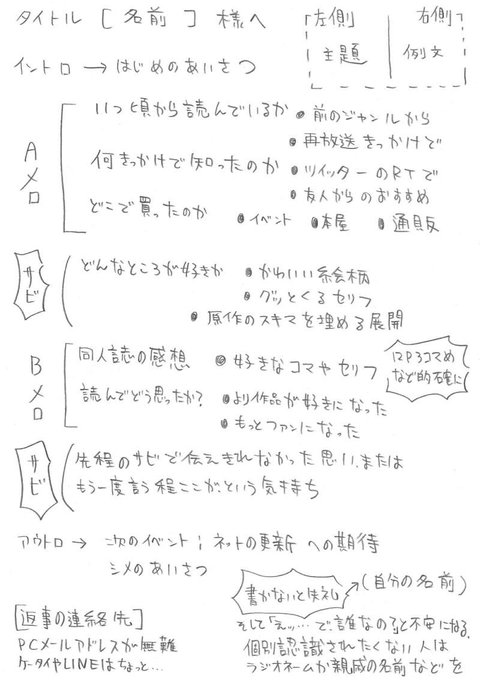 タイトル [ 名前 ] 様へ
左側 右側
主題 例文
イントロ → はじめのあいさつ
Aメロ
いつ頃から読んでいるか ●前のジャンルから
●再放送きっかけで
何きっかけで知ったのか ●ツイッターのRTで
●友人からのおすすめ
どこで買ったのか ●イベント ●本屋 ●通販
サビ
どんなところが好きか ●かわいい絵柄
●グッとくるセリフ
●原作のスキマを埋める展開
Bメロ
同人誌の感想 ●好きなコマやセリフ
12P3コマめ
など的確に
読んでどう思ったか? ●より作品が好きになった
●もっとファンになった
サビ
先程のサビで伝えきれなかった思い、または
もう一度言う程ここが、という気持ち
アウトロ → 次のイベント; ネットの更新 への期待
シメのあいさつ
書かないと失礼 (自分の名前)
[返事の連絡先]
PCメールアドレスが無難
ケータイやLINEはちょっと…
そして「えッ…で、誰なの」と不安になる。
個別認識されたくない人は
ラジオネームか親戚の名前などを